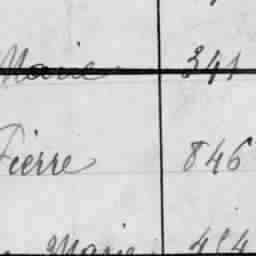 Marie 341
Pierre 846
Marie 454